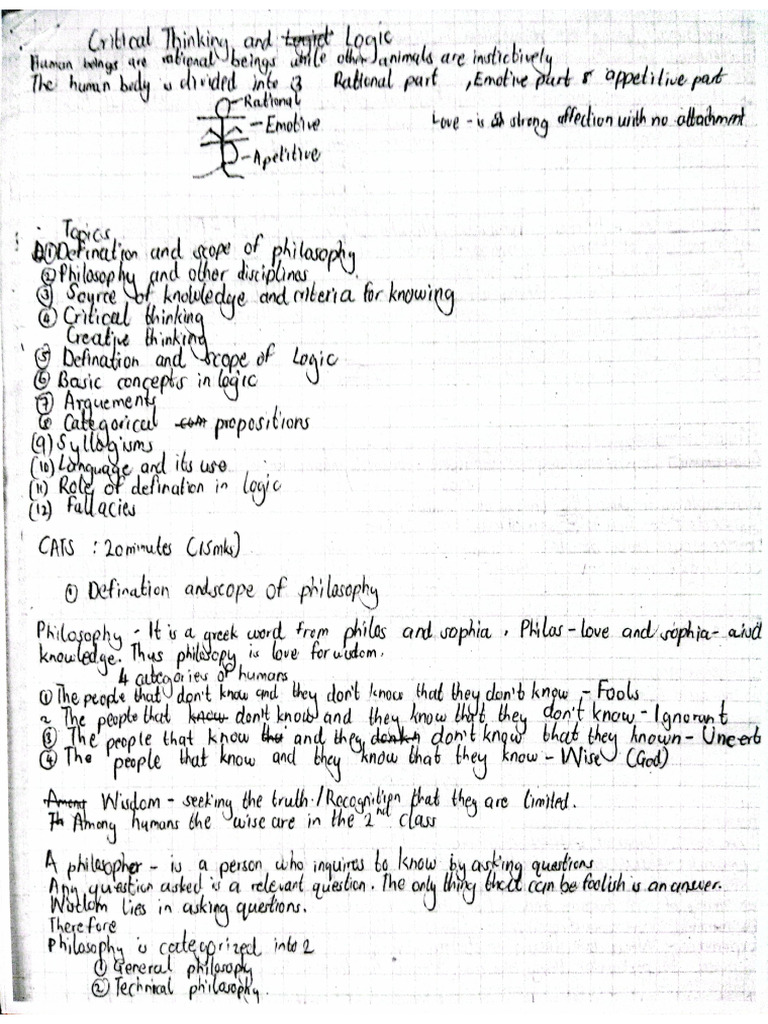 Critical Thinking and Logic
Human beings are rational beings while other animals are instictively
The human body is divided into 3 Rational part , Emotive part & appetitive part
Rational
Emotive
Love - is strong affection with no attachment
Apetitive
Topics
① Defination and scope of philosophy
② Philosophy and other disciplines
③ Source of knowledge and criteria for knowing
④ Critical thinking
Creative thinking
⑤ Defination and scope of Logic
⑥ Basic concepts in logic
⑦ Arguements
⑧ Categorical propositions
(9) Syllogisms
(10) Language and its use
(11) Role of defination in logic
(12) Fallacies
CATS : 20 minutes (15mks)
① Defination and scope of philosophy
Philosophy - It is a greek word from philos and sophia , Philos - love and sophia -
knowledge. Thus philosopy is love for wisdom.
4 categories of humans
① The people that don't know and they don't know that they don't know - Fools
2 The people that don't know and they know that they don't know - Ignorant
③ The people that know and they don't know that they known - Uncert
④ The people that know and they know that they know - Wise (God)
Wisdom - seeking the truth / Recognition that they are limited.
Among humans the wise are in the 2nd class
A philospher - is a person who inquires to know by asking questions
Any question asked is a relevant question. The only thing that can be foolish is an answer.
Wisdom lies in asking questions.
Therefore
Philosophy is categorized into 2
① General philosophy
② Technical philosophy.